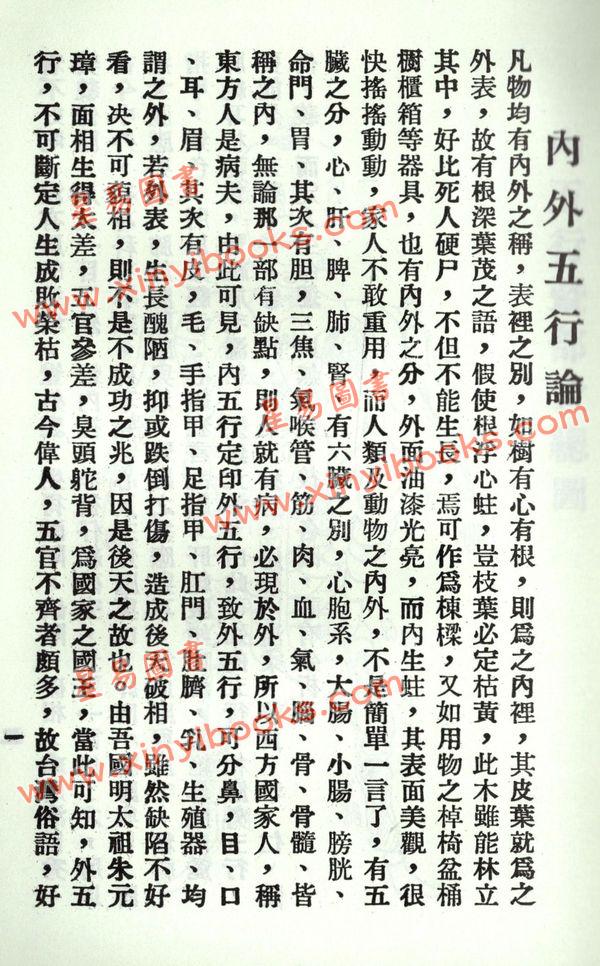 內外五行論
凡物均有內外之稱，表裡之別，如樹有心有根，則爲之內裡，其皮葉就爲之
外表，故有根深葉茂之語，假使根浮心蛀，豈枝葉必定枯黃，此木雖能林立
其中，好比死人硬尸，不但不能生長，焉可作爲棟樑，又如用物之棹椅盆桶
櫥櫃箱等器具，也有內外之分，外面油漆光亮，而內生蛀，其表面美觀，很
快搖搖動動，家人不敢重用，而人類及動物之內外，不是簡單一言了，有五
臟之分，心、肝、脾、肺、腎、有六臟之別，心胞系，大腸、小腸、膀胱、
命門、胃、其次有胆，三焦、氣喉管、筋、肉、血、氣、腦、骨、骨髓、皆
稱之內，無論那一部有缺點，則人就有病，必現於外，所以西方國家人，稱
東方人是病夫，由此可見，內五行定印外五行，致外五行，可分鼻，目、口
、耳、眉、其次有皮，毛、手指甲、足指甲、肛門、肚臍、乳、生殖器、均
謂之外，若外表，生長醜陋，抑或跌倒打傷，造成後天破相，雖然缺陷不好
看，决不可貌相，則不是不成功之兆，因是後天之故也。由吾國明太祖朱元
璋，面相生得太差，五官參差，臭頭駝背，爲國家之國主，當此可知，外五
行，不可斷定人生成敗榮枯，古今偉人，五官不齊者頗多，故台灣俗語，好
一
星易圖書
www.xinyibooks.com
星易圖書
www.xinyibooks.com
星易圖書
www.xinyibooks.com